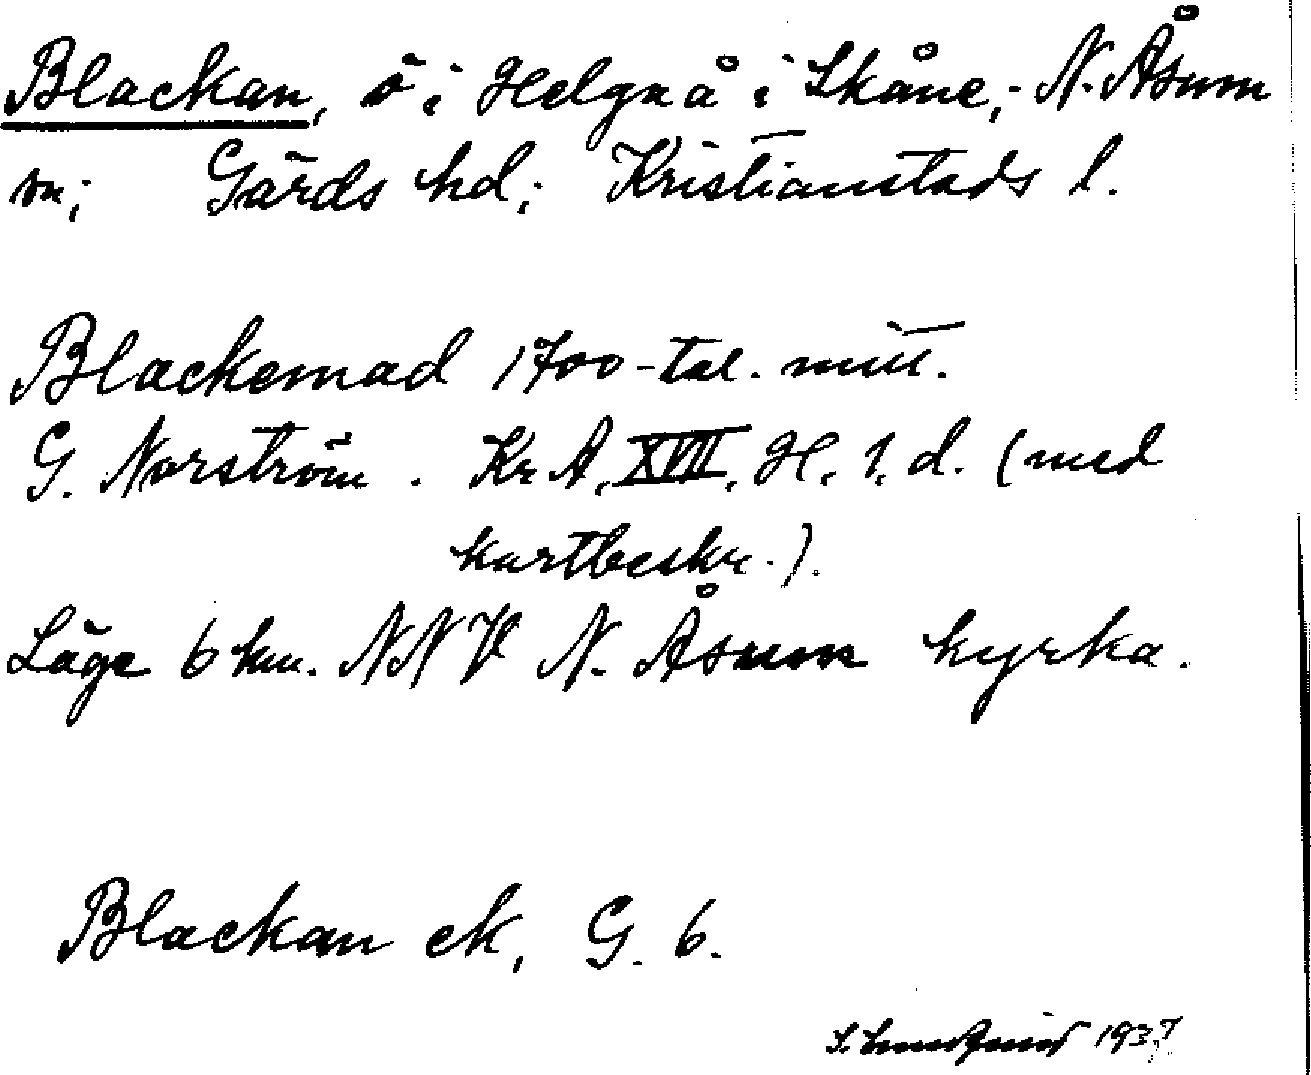 Blackan, ö i Helgeå i Skåne; N. Åsum
sn; Gärds hd; Kristianstads l.
Blackemad 1700-tal. mitt.
G. Norström. Kr A, XVII, H. 1. d. (med
kartbeskr.).
Läge 6 km. NNV N. Åsum kyrka.
Blackan ek, G. 6.
1937